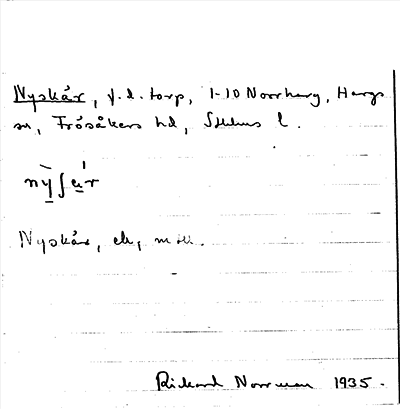 Nyskär, f.d. torp, 1-10 Norrharg, Hargs
sn, Frösåkers hd, Sthlms l.
nỳʃä́r
Nyskär, ek,
Rickard Norrman 1935.